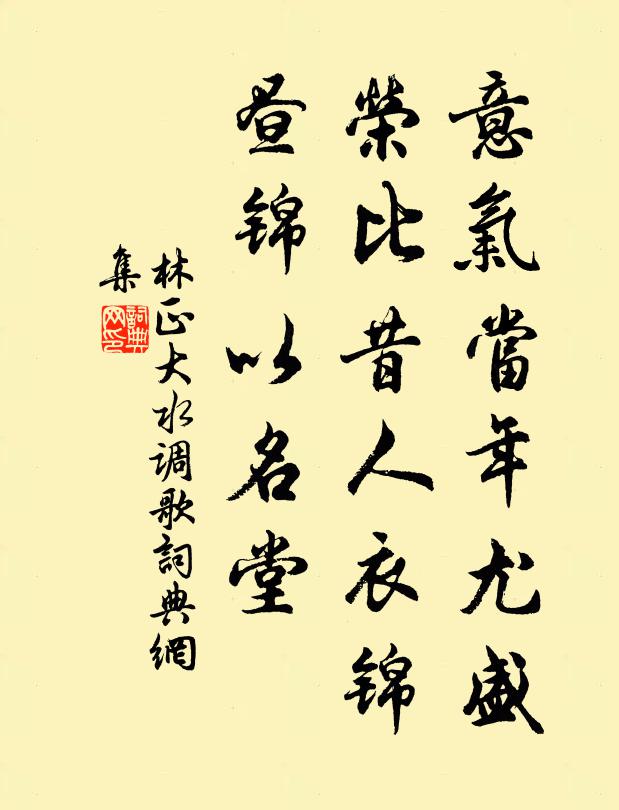 意氣當年尤盛
榮比昔人衣锦
昼锦以名堂
林正大水调歌詞典網
集
詞典网印